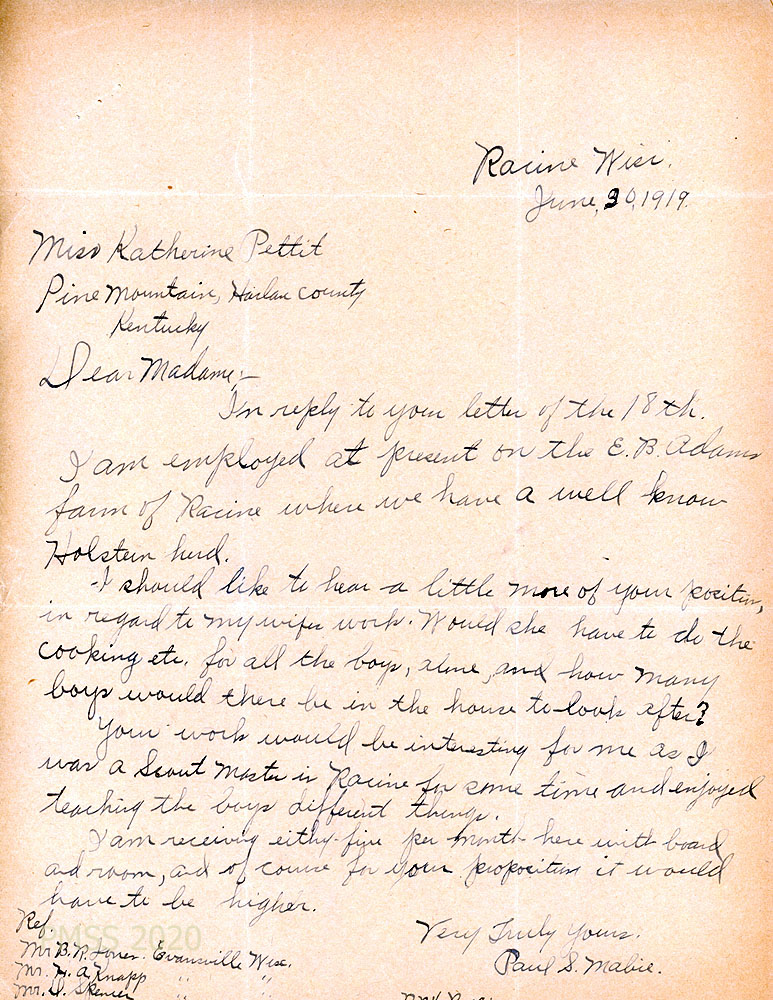 Racine Wisc.
June, 30, 1919.
Miss Katherine Pettit
Pine Mountain, Harlan County
Kentucky
Dear Madame;-
In reply to your letter of the 18th.
I am employed at present on the E. B. Adams
farm of Racine where we have a well know
Holstein herd.
I should like to hear a little more of your position,
in regard to my wifes work. Would she have to do the
cooking etc. for all the boys, alone, and how many
boys would there be in the house to look after?
Your work would be interesting for me as I
was a Scout Master in Racine for some time and enjoyed
teaching the boys different things.
I am receiving eithy-five per month here with board
and room, and of course for your proposition it would
have to be higher.
Very Truly Yours.
Paul S. Mabie.
Ref.
Mr B. R. Jones. Evansville Wisc.
Mr. H. A. Knapp " "
Mr. D. Spencer " "
PMSS 2020